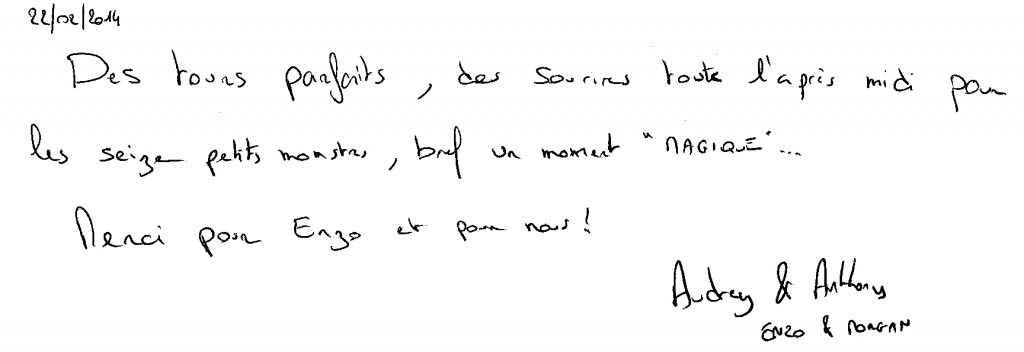 22/02/2014
Des tours parfaits, des sourires toute l'après midi pour
les seize petits monstres, bref un moment "MAGIQUE"...
Merci pour Enzo et pour nous!
Audrey & Anthony
ENZO & MORGAN